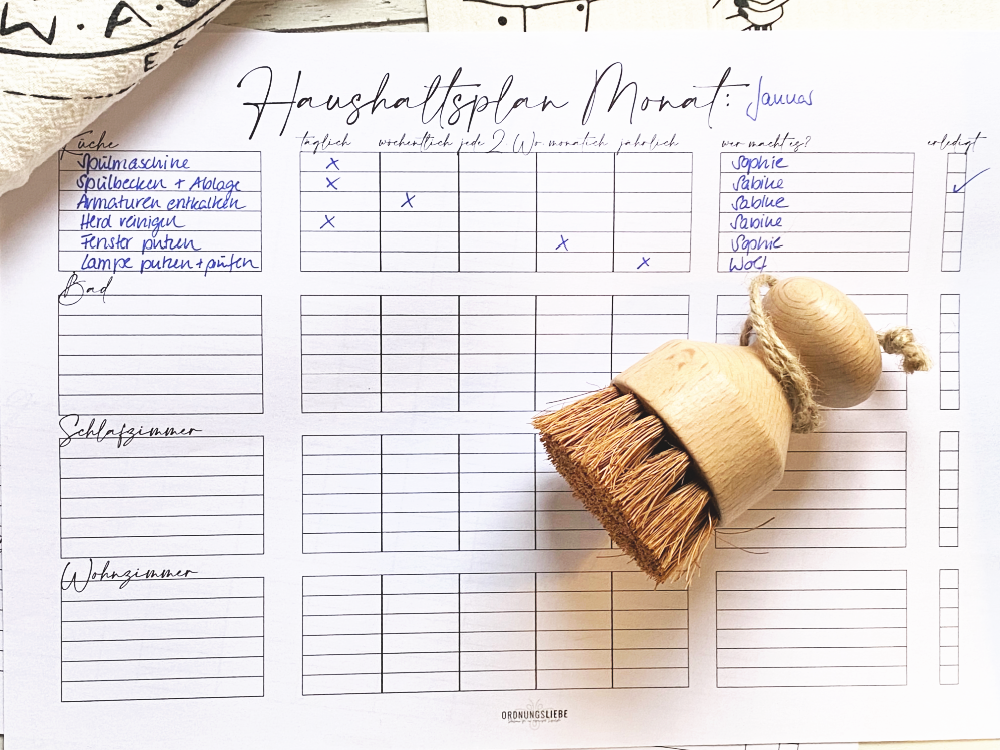 W.A.
E
Haushaltsplan Monat: Januar
Küche täglich wöchentlich jede 2. Wo. monatlich jährlich wer macht es? erledigt
Spülmaschine X Sophie
Spülbecken + Ablage X Sabine ✓
Armaturen entkalken X Sabine
Herd reinigen X Sabine
Fenster putzen X Sophie
Lampe putzen + prüfen X Wolf
Bad
Schlafzimmer
Wohnzimmer
ORDNUNGSLIEBE